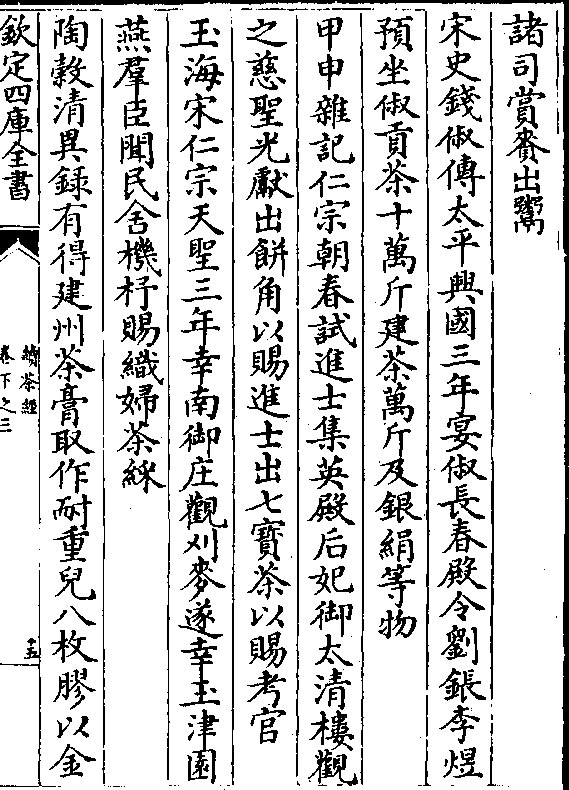 諸司賞賚出鬻
宋史錢俶傳太平興國三年宴俶長春殿令劉鋹李煜
預坐俶貢茶十萬斤建茶萬斤及銀絹等物
甲申雜記仁宗朝春試進士集英殿后妃御太清樓觀
之慈聖光獻出餅角以賜進士出七寳茶以賜考官
玉海宋仁宗天聖三年幸南御庄觀刈麥遂幸玉津園
燕羣臣聞民舍機杼賜織婦茶綵
陶榖清異録有得建州茶膏取作耐重兒八枚膠以金
欽定四庫全書
續茶經
卷下之三
十五